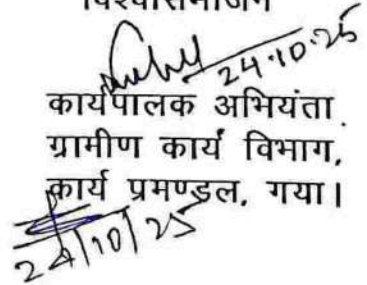 विश्वासभाजन
24.10.25
कार्यपालक अभियंता
ग्रामीण कार्य विभाग,
कार्य प्रमण्डल, गया।
24/10/25